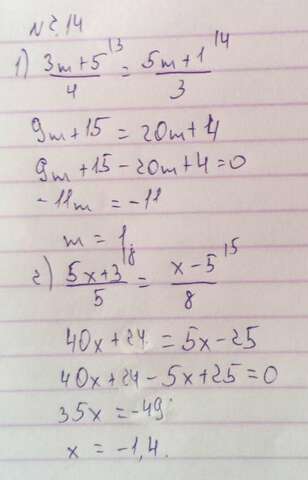 №2.14
1) (3m+5)/4 ^13 = (5m+1)/3 ^14
9m+15 = 20m+4
9m+15-20m+4=0
-11m = -11
m = 1
2) (5x+3)/5 ^18 = (x-5)/8 ^15
40x+24 = 5x-25
40x+24-5x+25=0
35x = -49
x = -1,4.